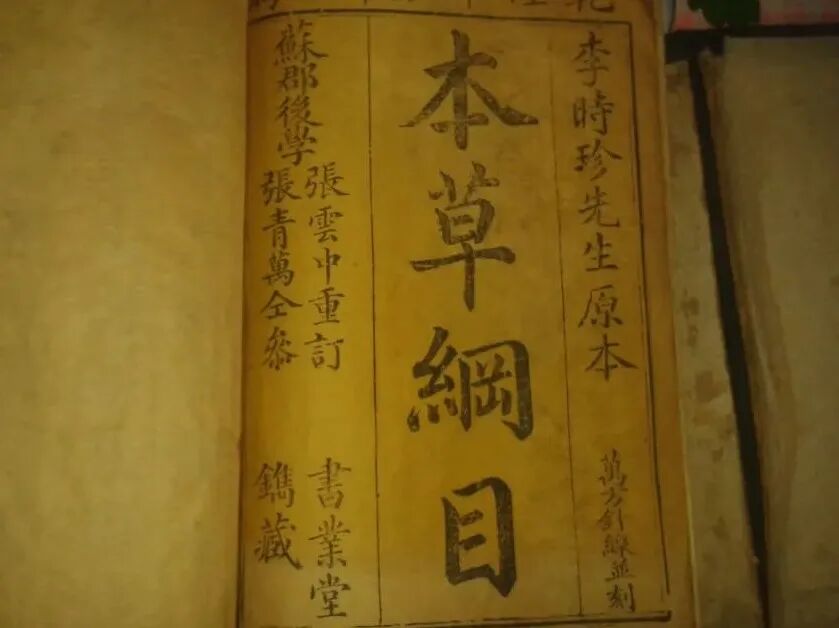 李時珍先生原本
萬方針線並刻
本草綱目
蘇郡後学
張雲中重訂
張青萬仝參
書業堂
鐫藏